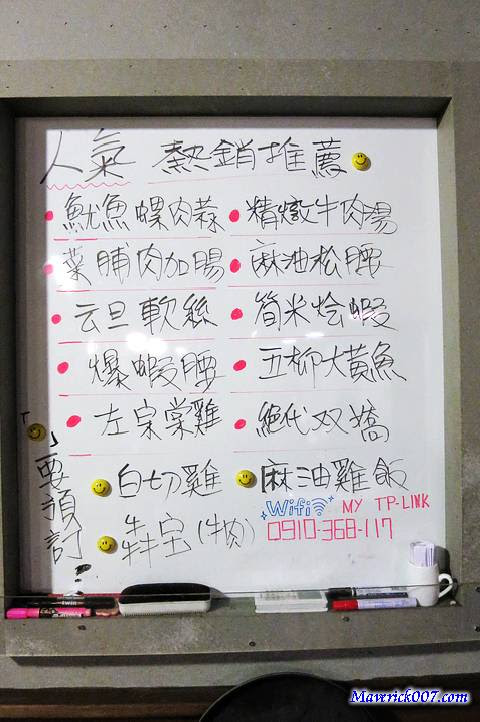 人氣 熱銷推薦
魷魚螺肉蒜 精燉牛肉湯
菜脯肉加腸 麻油松腰
云旦軟絲 筍米烩蝦
爆蝦腰 五柳大黃魚
左宗棠雞 絕代双嬌
白切雞 麻油雞飯
犇宝(牛肉)
「」要預訂!
Wifi MY TP-LINK
0910-368-117
Maverick007.com